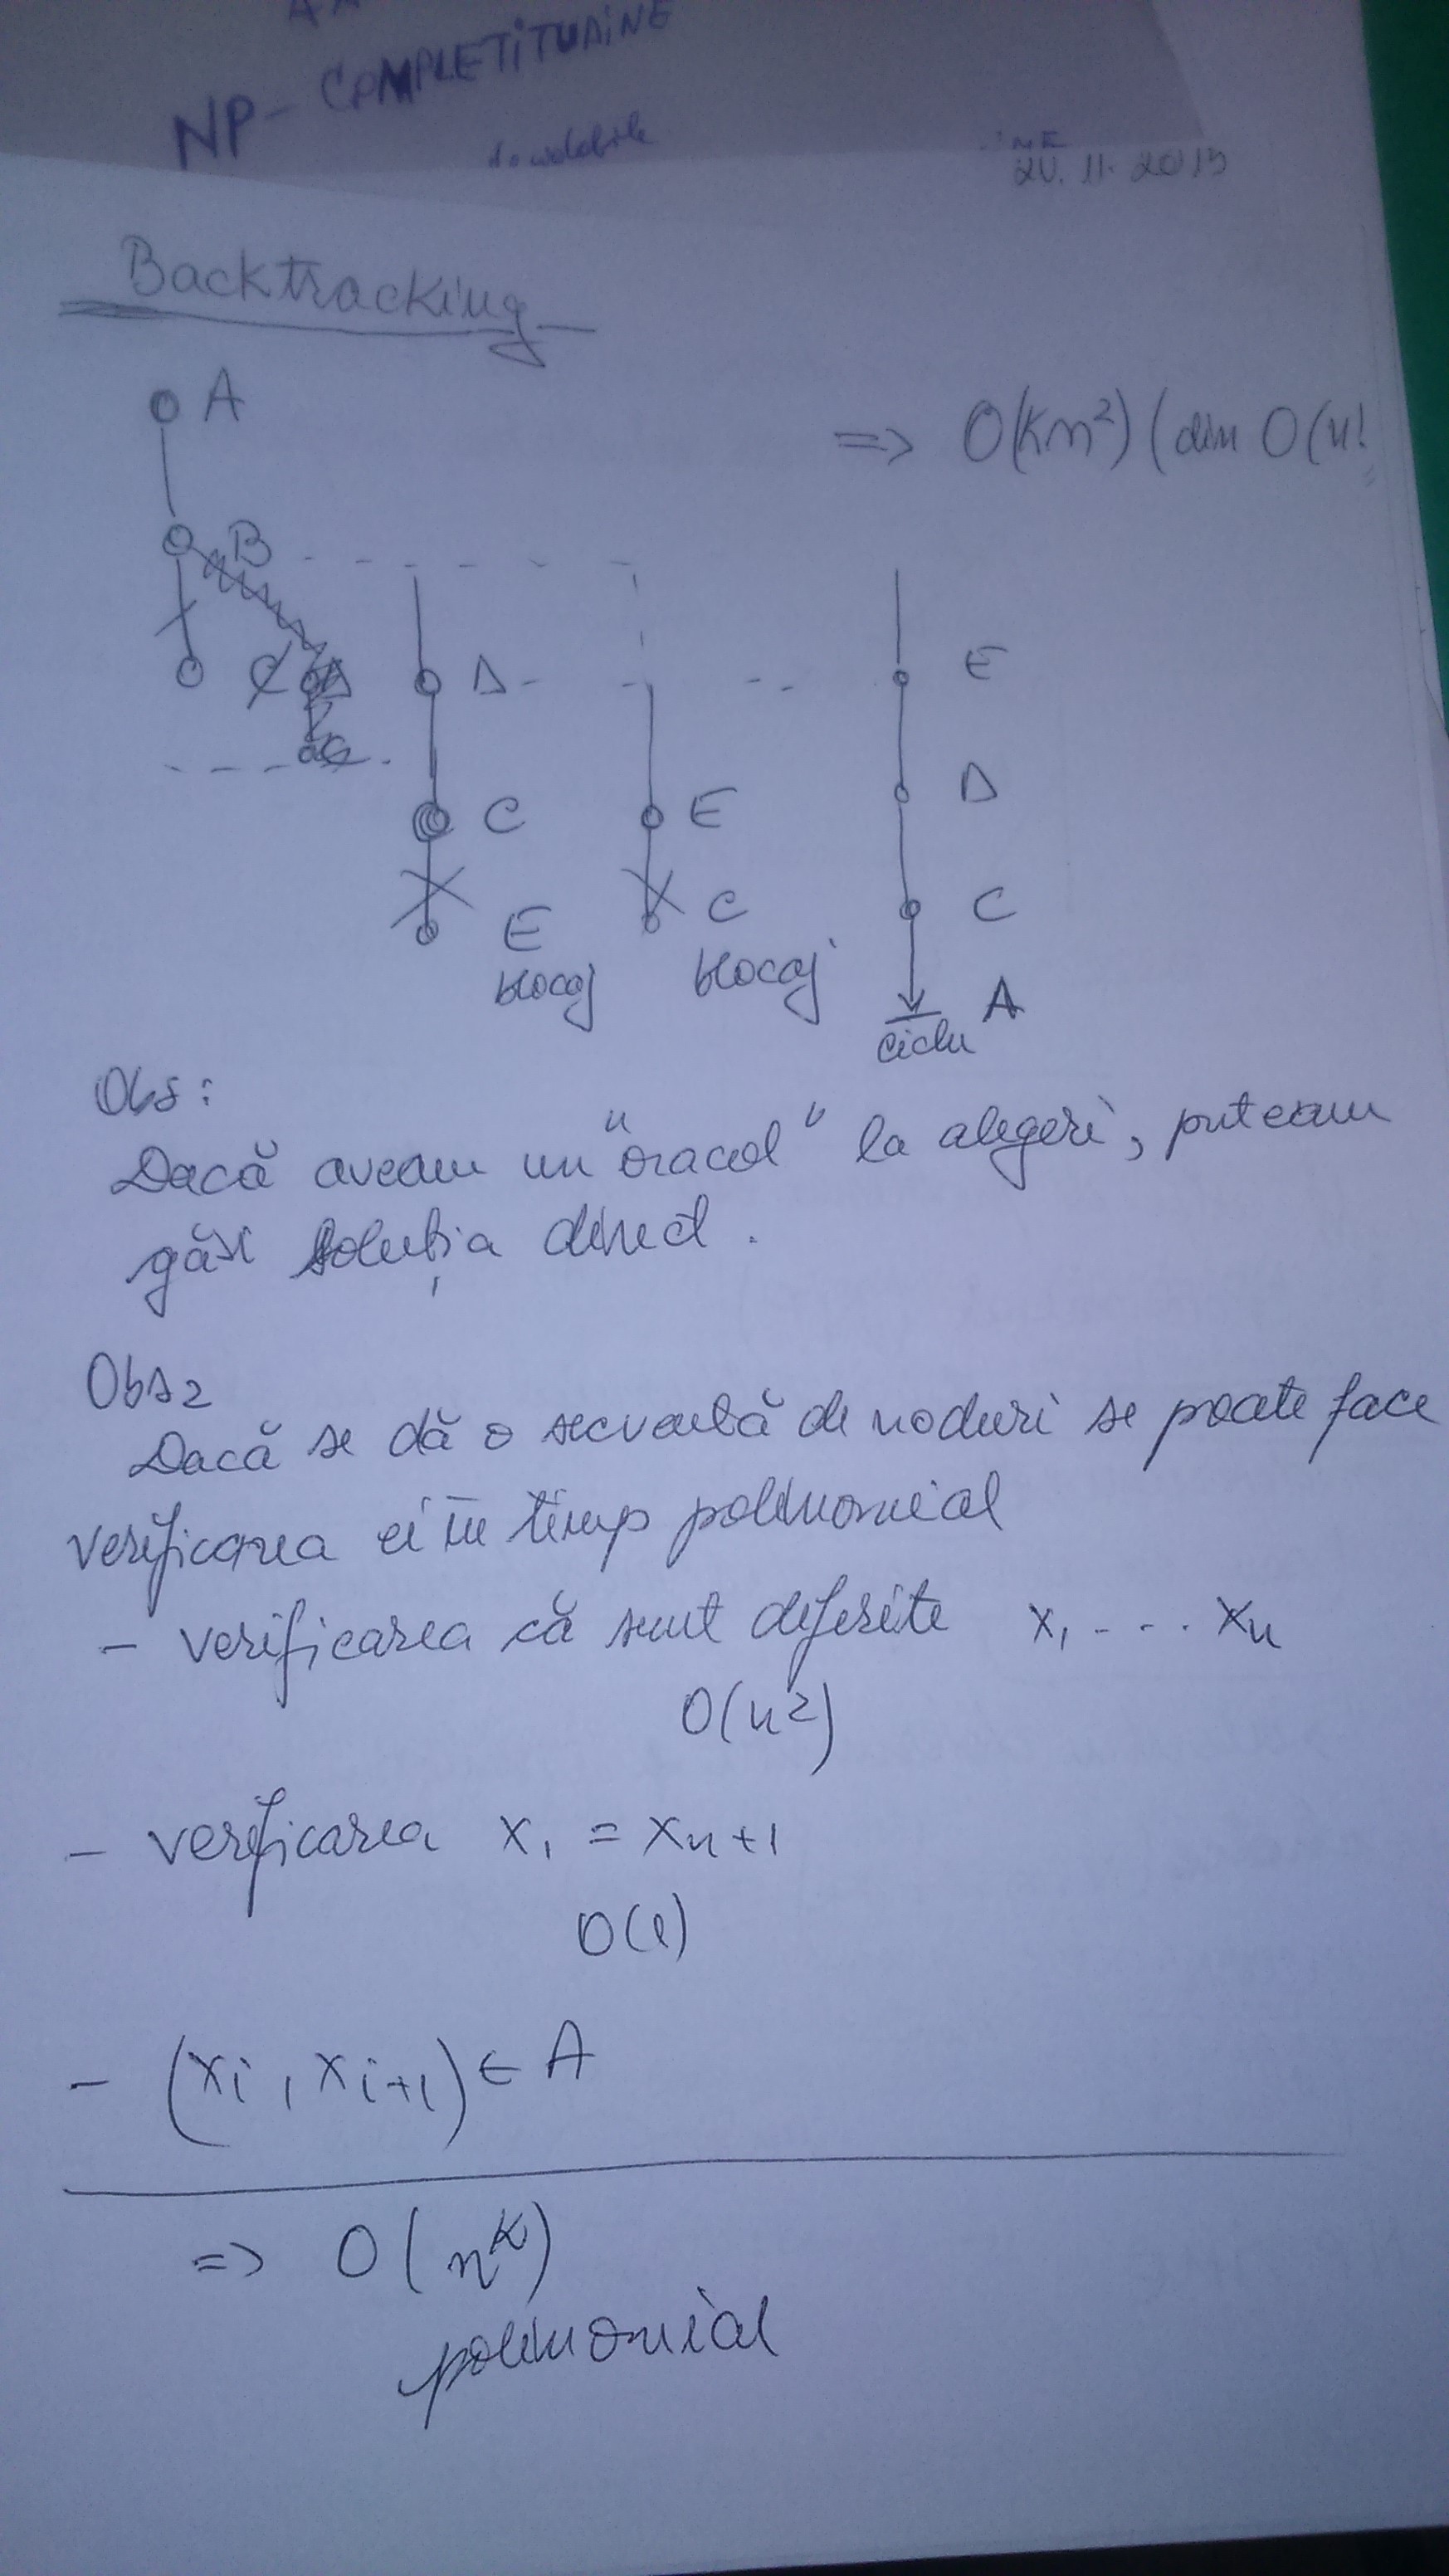 NP - COMPLETITUDINE
Backtracking
A
=> O(Kn²) (din O(n!
B
C
D
E
D
C
E
C
E
blocaj
C
blocaj
A
ciclu
Obs:
Dacă aveam un "oracol" la alegeri, puteam
găsi soluția direct.
Obs2
Dacă se dă o secvență de noduri se poate face
verificarea ei în timp polinomial
- verificarea că sunt diferite x₁ - - - xₙ
O(n²)
- verificarea x₁ = xₙ₊₁
O(1)
- (xᵢ, xᵢ₊₁) ∈ A
=> O(nᴷ)
polinomial